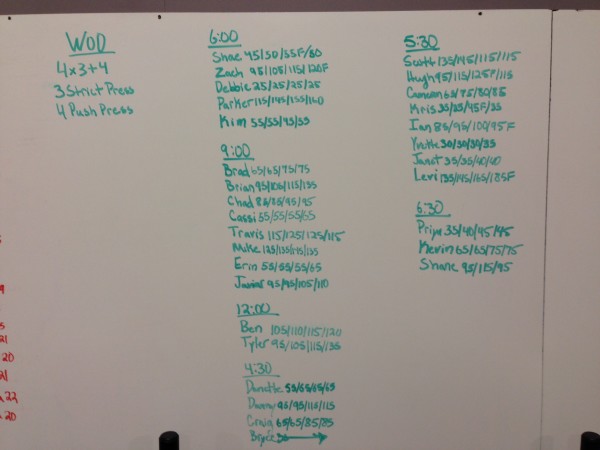 WOD
4x3+4
3 Strict Press
4 Push Press
6:00
Shae 45/50/55F/50
Zach 95/105/115/120F
Debbie 25/25/25/25
Parker 115/145/135/140
Kim 55/55/45/55
9:00
Brad 65/65/75/75
Brian 95/105/115/135
Chad 85/85/95/95
Cassi 55/55/55/65
Travis 115/125/125/115
Mike 125/135/145/135
Erin 55/55/55/65
Javier 95/95/105/110
12:00
Ben 105/110/115/120
Tyler 95/105/115/135
4:30
Danielle 55/55/65/65
Danny 95/95/115/115
Craig 65/65/85/85
Bryce
5:30
Scott 135/145/115/115
Hugh 95/115/125F/115
Cameron 65/75/80/85
Kris 35/35/45F/35
Ian 85/95/100/95F
Yvette 30/30/30/35
Janet 35/35/40/40
Levi 135/145/165/185F
6:30
Priya 35/40/45/45
Kevin 65/65/75/75
Shane 95/115/95
21
20
21
22
20